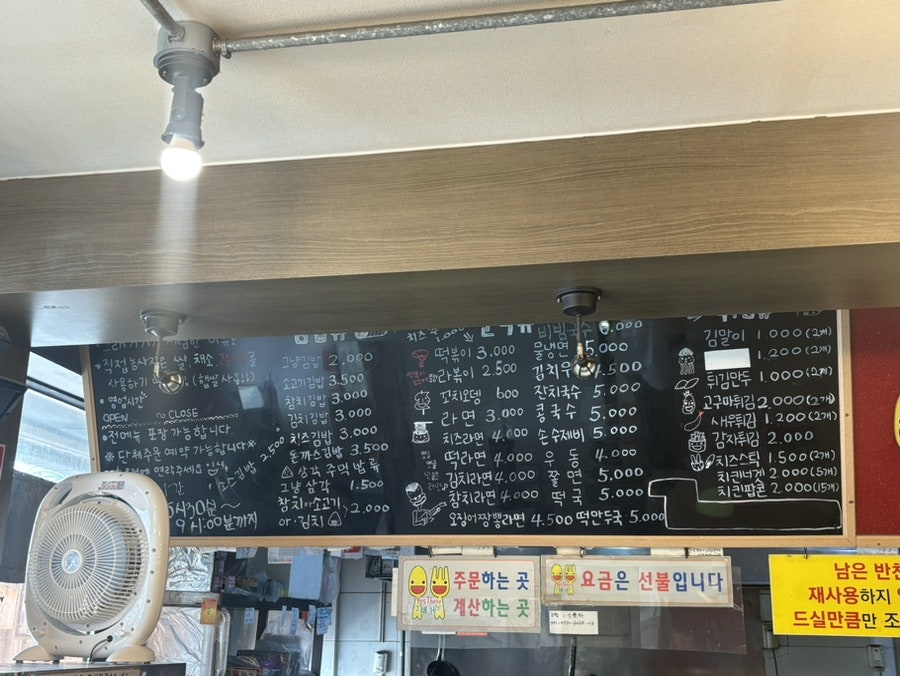 ※직접 농사지은 쌀, 채소
• 영업시간
OPEN ~ CLOSE
※전메뉴 포장 가능합니다
※ 단체주문 예약 가능합니다※
그냥김밥 2.000
소고기김밥 3.500
참치김밥 3.000
김치김밥 3.000
치즈김밥 3.000
돈까스김밥 3.500
소스김밥 2.500
△ 삼각 주먹밥류
그냥삼각 1.500
참치 소고기
야·김치 > 2.000
떡볶이 3,000
라볶이 2.500
꼬치오뎅 600
라면 3.000
치즈라면 4.000
떡라면 4.000
김치라면 4.000
참치라면 4.000
오징어짬뽕라면 4.500
비빔국수 5.000
물냉면 5.000
잔치국수 5.000
콩국수 5.000
손수제비 5.000
우동 4.000
쫄면 5.000
떡국 5.000
떡만두국 5.000
김말이 1.000 (2개)
1.200 (2개)
튀김만두 1.000 (2개)
고구마튀김 2.000 (2개)
새우튀김 1.200 (2개)
감자튀김 2.000
치즈스틱 1.500 (2개)
치킨너겟 2.000 (5개)
치킨팝콘 2.000 (15개)
주문하는 곳
계산하는 곳
요금은 선불입니다
남은 반찬
재사용하지
드실만큼만